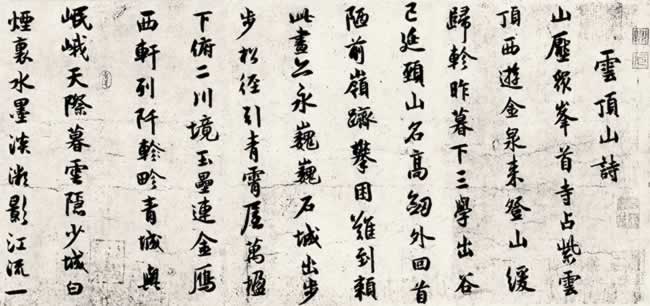 雲頂山詩
山壓衆峯首寺占紫雲
頂西遊金泉来登山緩
歸軫昨暮下三學出谷
已延頸山名高劒外回首
陋前嶺躋攀困難到賴
此盡亦永巍巍石城出步
步松徑引青霄屋萬楹
下俯二川境玉壘連金鴈
西軒列阡軫畛青城與
岷峨天際暮雲隱少城白
煙裏水墨淡影江流一